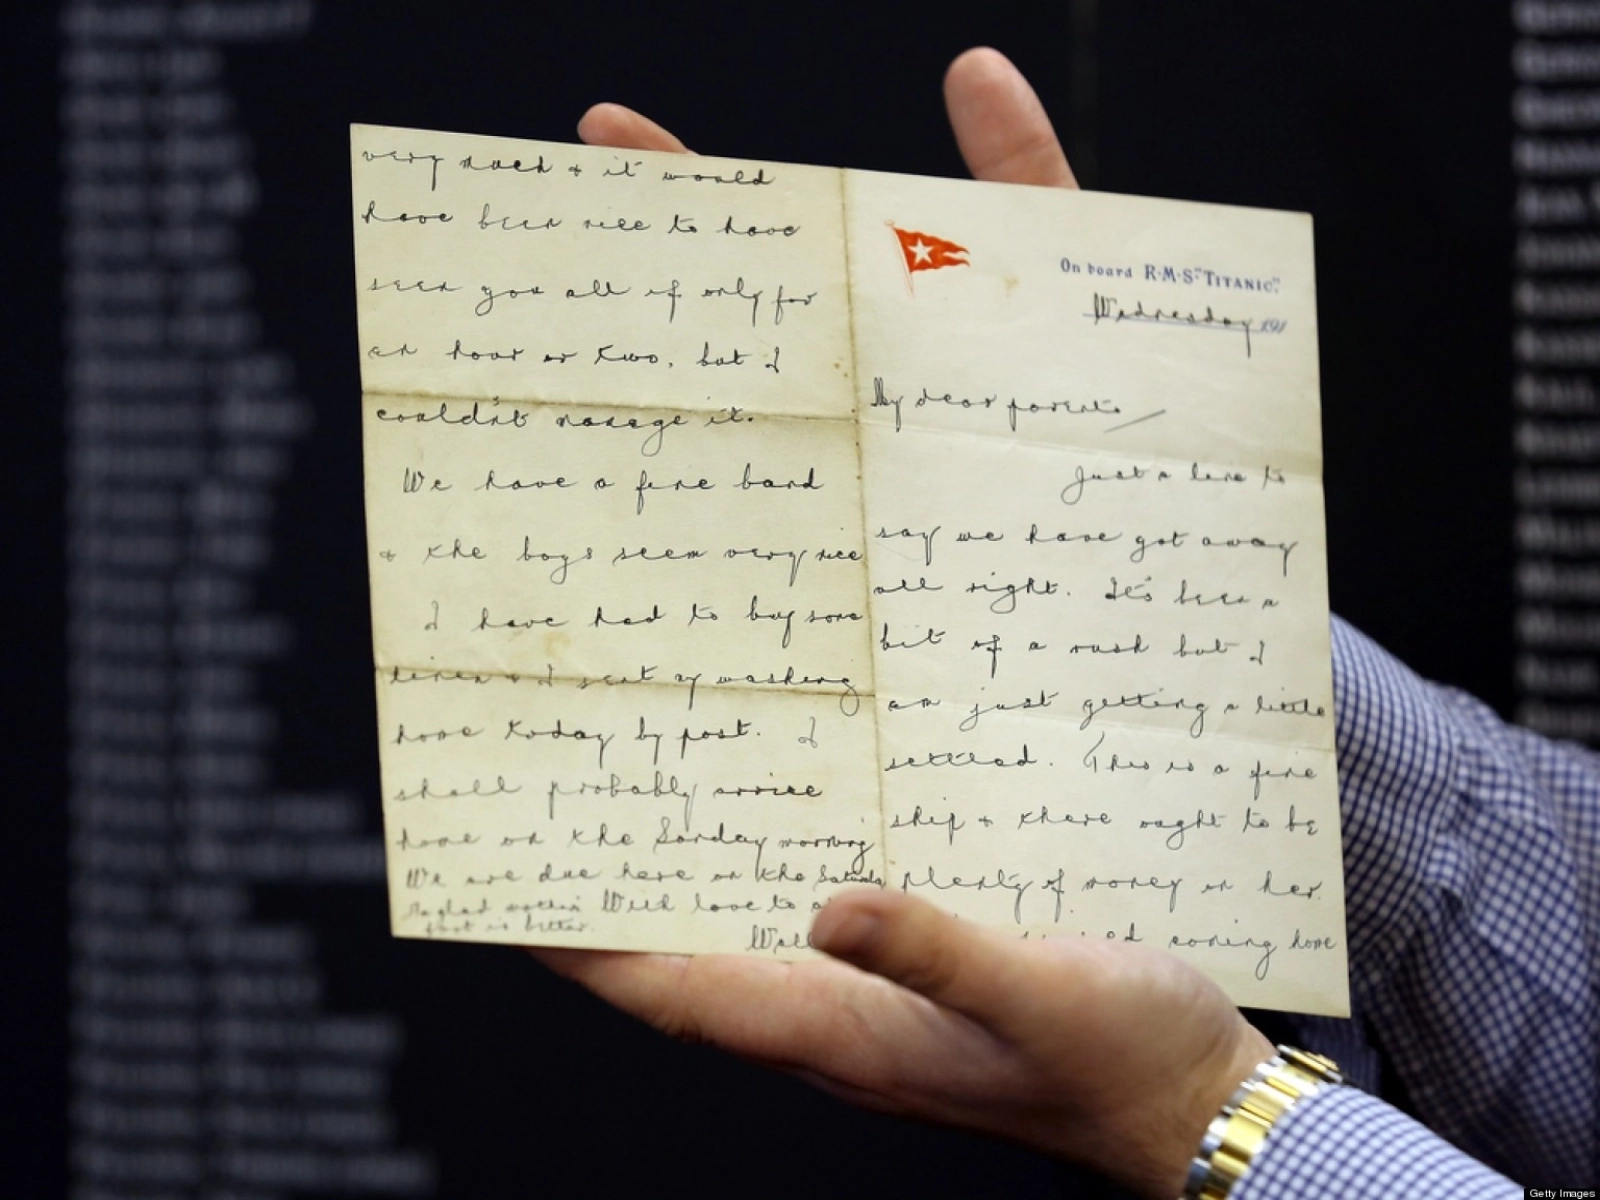 On board R·M·S· "TITANIC."
Wednesday 191
My dear parents
Just a line to
say we have got away
all right. It's been a
bit of a rush but I
am just getting a little
settled. This is a fine
ship & there ought to be
plenty of money on her.
coming home
very much & it would
have been nice to have
seen you all if only for
an hour or two, but I
couldn't manage it.
We have a fine band
& the boys seem very nice
I have had to buy some
linen & I sent my washing
home today by post. I
shall probably arrive
home on the Sunday morning
We are due here on the Saturday
With love to
foot is better.
Getty Images